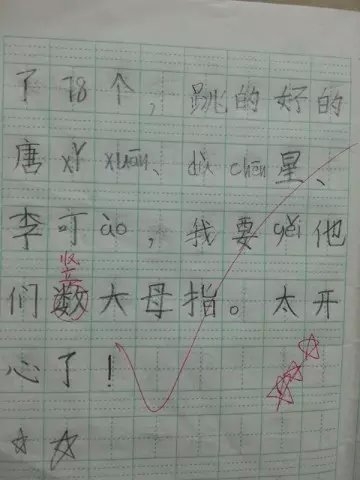 了78个，跳的好的
唐xǐ xuān、dí chēn星、
李可ào，我要gěi他
竖
们数大母指。太开
心了！